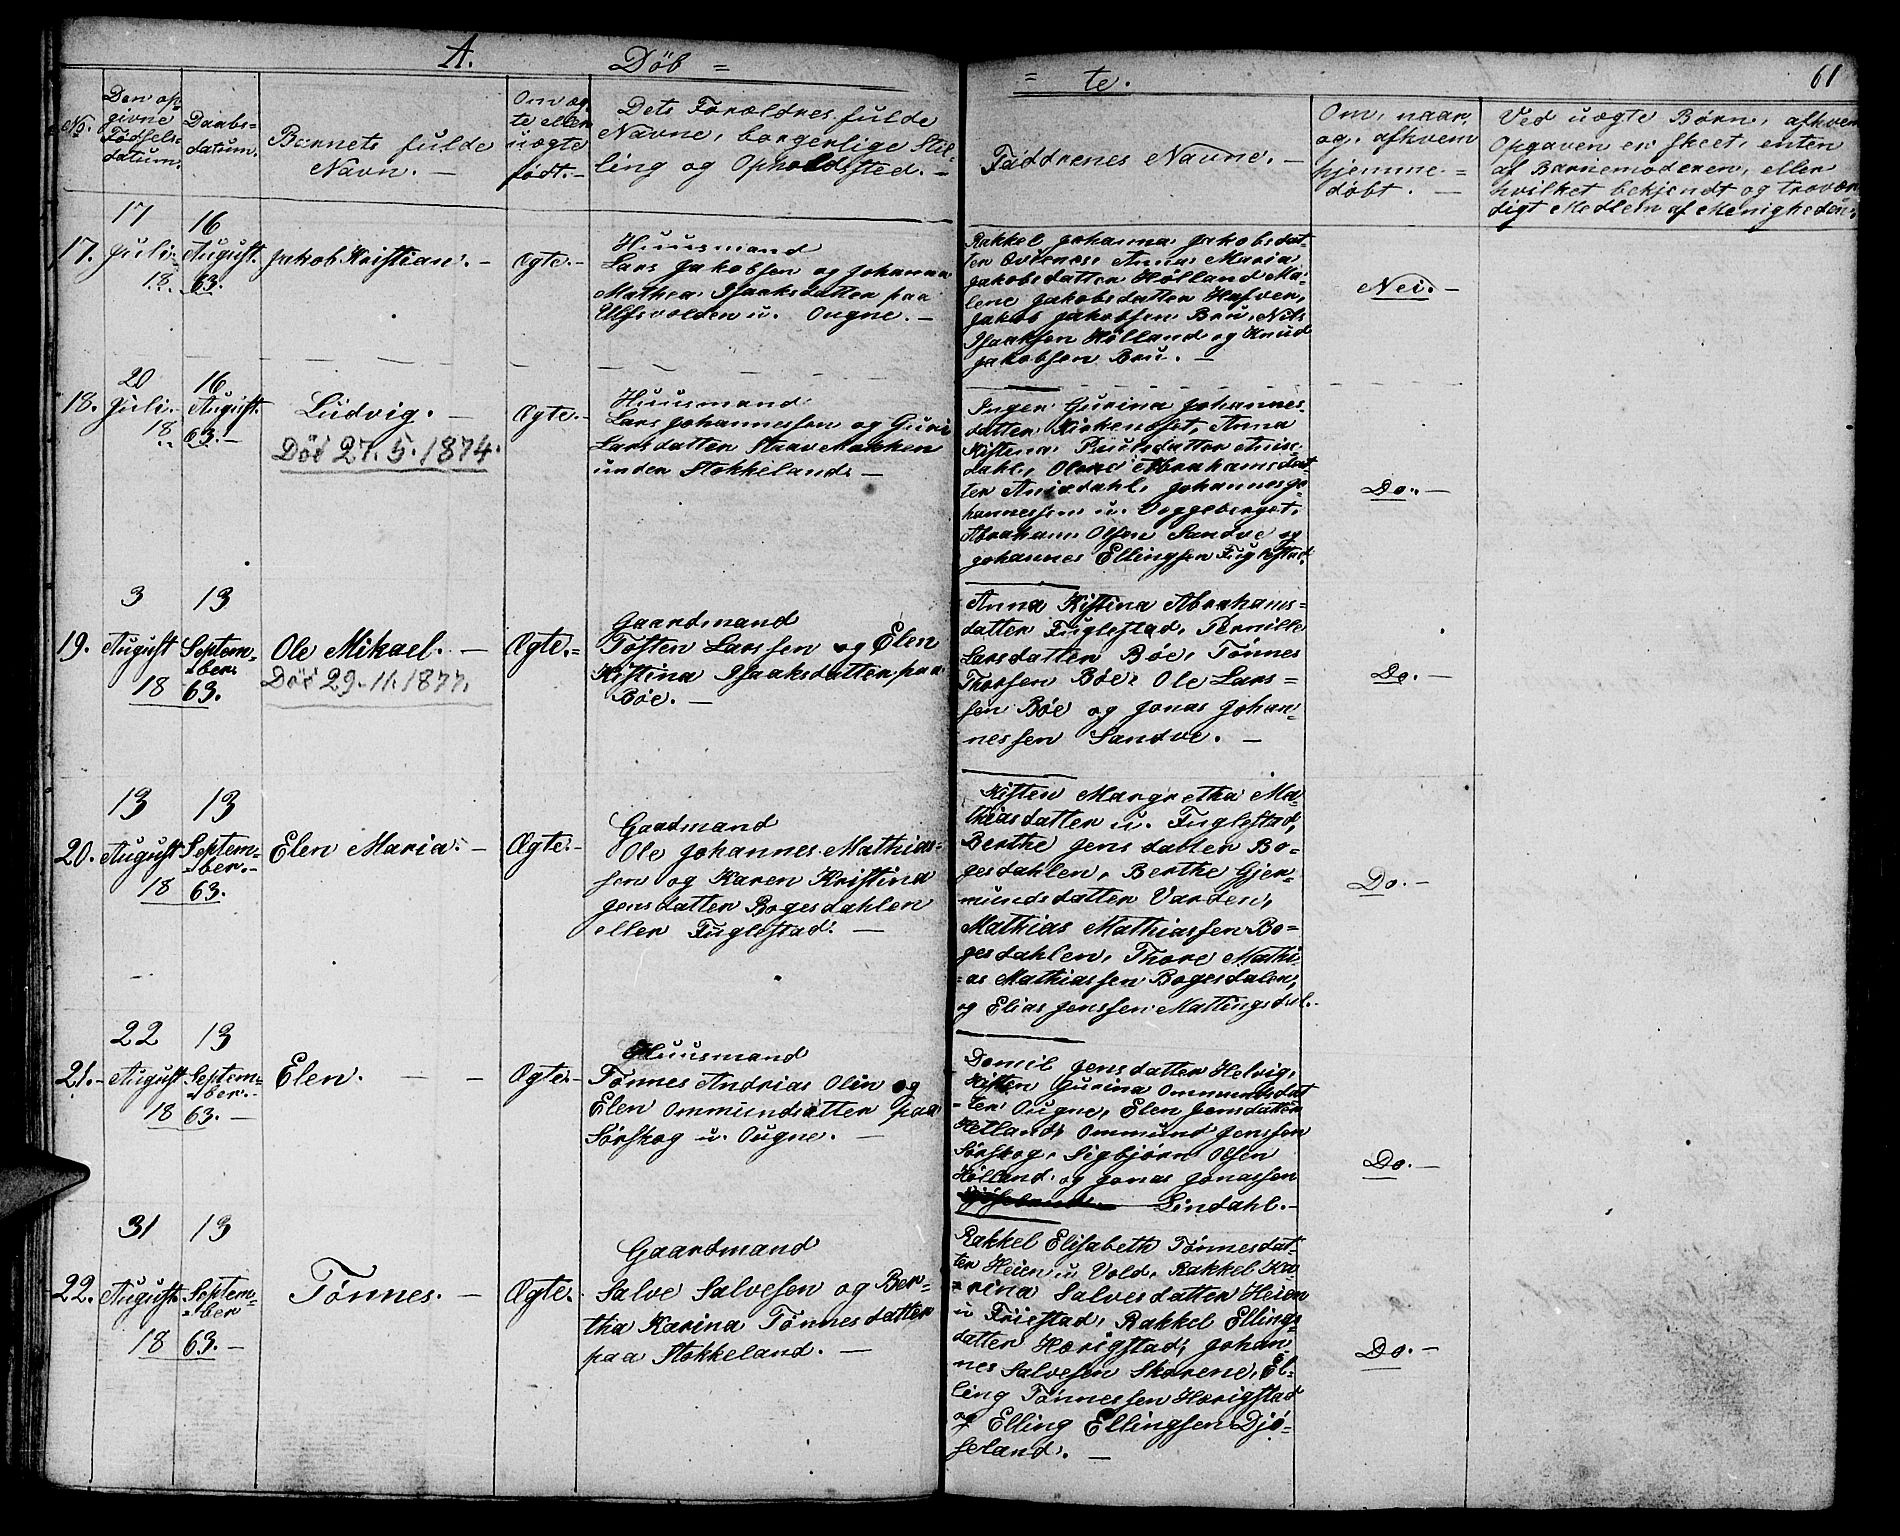 A. Döb = = te. 61
No.
Den op
givne
Födsels
datum.
Daabs-
datum.
Barnets fulde
Navn. —
Om æg
te eller
uægte
født. —
Dets Forældres fulde
Navne, borgerlige Stil-
ling og Opholdssted. —
Faddrenes Navne. —
Om, naar
og, afhvem
hjemme =
döbt. —
Ved uægte Børn, afhvem
Opgaven er skeet, enten
af Barnemoderen, eller
hvilket bekjendt og trovær
digt Medlem af Menigheden.
17.
17
Juli
18
16
August.
63.
Jakob Kristian. —
Ægte. —
Huusmand
Lars Jakobsen og Johanna
Mathea Isaaksdatter paa
Ulfsvolden u. Ougne. —
Rakkel Johanna Jakobsdat-
ter Anna Maria
Jakobsdatter Hølland Ma-
lene Jakobsdatter
Jakob Jakobsen Bru, Nils
Isaaksen Hølland og Knud
Jakobsen Bru. —
Nei. —
18.
20
Juli
18
16
August.
63. —
Ludvig. —
Död 27.5.1874.
Ægte. —
Huusmand
Lars Johannessen og Guri
Larsdatter
under Stokkeland. —
Inger Gurina Johannes-
datter Anna
Kistina
dahl, Abrahamsdat-
ter Anisdahl, Johannes Jo-
hannessen u.
Abraham Olsen Sandve og
Johannes Ellingsen Fuglestad.
Do. —
19.
3
August
18
13
Septem-
ber.
63.
Ole Mikael. —
Död 29.11.1877.
Ægte. =
Gaardmand
Tosten Larssen og Elen
Kistina Isaaksdatter paa
Böe. —
Anna Kistina Abrahams-
datter Fuglestad, Pernille
Larsdatter Böe, Tønnes
Thorsen Böe, Ole Lars =
sen Böe og Jonas Johan-
nessen Sandve. —
Do. —
20.
13
August
18
13
Septem-
ber. —
63.
Elen Maria. —
Ægte. —
Gaardmand
Ole Johannes Mathias-
sen og Karen Kristina
Jensdatter Bogesdahlen
eller Fuglestad. —
Kisten Margretha Ma-
thiasdatter u. Fuglestad,
Berthe Jensdatter Bo-
gesdahlen, Berthe Gjer-
mundsdatter Varden,
Mathias Mathiassen Bo=
gesdahlen, Thore Mathi-
as Mathiassen Bogesdalen,
og Elias Jenssen Mattingsdal.
Do. —
21. —
22
August
18
13
Septem-
ber. —
63. —
Elen. — —
Ægte. —
Huusmand
Tønnes Andrias Olin og
Elen Ommundsdatter paa
Sørskog u. Ougne. —
Domil Jensdatter Helvig,
Kisten Gurina Ommundsdat
ter Ougne, Elen Jensdatter
Hetland, Ommund Jenssen
Sørskog, Sigbjørn Olsen
Hølland, og Jonas Jonassen
Lindahl. —
Do. —
22.
31
August.
18
13
Septem-
ber
63. —
Tönnes. —
Ægte. —
Gaardmand
Salve Salvesen og Ber-
tha Karina Tønnesdatter
paa Stokkeland. —
Rakkel Elisabeth Tønnesdat-
ter Heien u Vold, Rakkel Ka-
rina Salvesdatter Heien
u Fröiestad, Rakkel Ellings-
datter Hærigstad, Johan-
nes Salvesen Skorene, El-
ling Tønnessen Hærigstad
og Elling Ellingsen Djö-
seland. —
Do. —